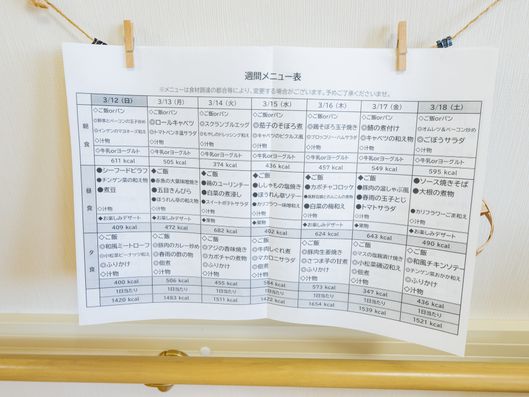 週間メニュー表
※メニューは食材調達の都合等により、変更する場合がございます。予めご了承くださいませ。
3/12 (日) 3/13 (月) 3/14 (火) 3/15 (水) 3/16 (木) 3/17 (金) 3/18 (土)
朝食
◇ご飯orパン
◎野菜とベーコンの玉子炒め
◎インゲンのマヨネーズ和え
◇汁物
◇牛乳orヨーグルト
611 kcal
◇ご飯orパン
◎ロールキャベツ
◎トマトペンネ温サラダ
◇汁物
◇牛乳orヨーグルト
505 kcal
◇ご飯orパン
◎スクランブルエッグ
◎もやしのドレッシング和え
◇汁物
◇牛乳orヨーグルト
374 kcal
◇ご飯orパン
◎茄子のそぼろ煮
◎キャベツのピクルス風
◇汁物
◇牛乳orヨーグルト
436 kcal
◇ご飯orパン
◎鶏そぼろ玉子焼き
◎ブロッコリーハムサラダ
◇汁物
◇牛乳orヨーグルト
457 kcal
◇ご飯orパン
◎鯖の煮付け
◎キャベツの和え物
◇汁物
◇牛乳orヨーグルト
549 kcal
◇ご飯orパン
◎オムレツ&ベーコン炒め
◎ごぼうサラダ
◇汁物
◇牛乳orヨーグルト
595 kcal
昼食
●シーフードピラフ
●チンゲン菜の和え物
●煮豆
◇汁物
◆お楽しみデザート
409 kcal
◆ご飯
●赤魚の大葉味噌焼き
●五目きんぴら
●ほうれん草の和え物
◇汁物
◆お楽しみデザート
472 kcal
◆ご飯
●鶏のユーリンチー
●白菜の煮浸し
●スイートポテトサラダ
◇汁物
◆果物
682 kcal
◆ご飯
●ししゃもの塩焼き
●ほうれん草ソテー
●カリフラワー味噌和え
◇汁物
◆お楽しみデザート
402 kcal
◆ご飯
●カボチャコロッケ
●白菜の梅和え
◇汁物
◆お楽しみデザート
624 kcal
◆ご飯
●豚肉の温しゃぶ風
●春雨の玉子とじ
●トマトサラダ
◇汁物
◆果物
643 kcal
●ソース焼きそば
●大根の煮物
●カリフラワーごま和え
◇汁物
◆お楽しみデザート
490 kcal
夕食
◇ご飯
◎和風ミートローフ
◎小松菜ピーナッツ和え
◎ふりかけ
◇汁物
400 kcal
◇ご飯
◎豚肉のカレー炒め
◎春雨の酢の物
◎佃煮
◇汁物
506 kcal
◇ご飯
◎アジの香味焼き
◎カボチャの煮物
◎ふりかけ
◇汁物
455 kcal
◇ご飯
◎牛肉しぐれ煮
◎マカロニサラダ
◎佃煮
◇汁物
584 kcal
◇ご飯
◎豚肉生姜焼き
◎さつま子の甘煮
◎ふりかけ
◇汁物
573 kcal
◇ご飯
◎マスの塩麹漬け焼き
◎小松菜磯辺和え
◎佃煮
◇汁物
347 kcal
◇ご飯
◎和風チキンソテー
◎チンゲン菜おかか和え
◎ふりかけ
◇汁物
436 kcal
1日当たり 1日当たり 1日当たり 1日当たり 1日当たり 1日当たり 1日当たり
1420 kcal 1483 kcal 1511 kcal 1422 kcal 1654 kcal 1539 kcal 1521 kcal